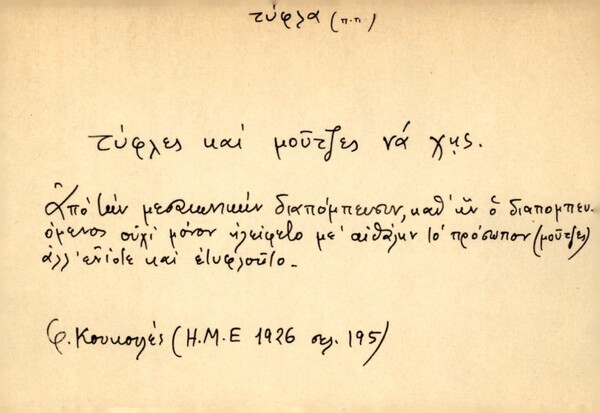 τύφλα (π.π)
τύφλες καί μοῦτζες νά χῃς.
Ἀπό τήν μεσαιωνικήν διαπόμπευσιν, καθ' ἥν ὁ διαπομπευ-
όμενος οὐχί μόνον ἠλείφετο μέ αἰθάλην τό πρόσωπον (μοῦτζες)
ἀλλ' ἐνίοτε καί ἐτυφλοῦτο.
Φ. Κουκουλές (Η.Μ.Ε 1926 σελ. 195)